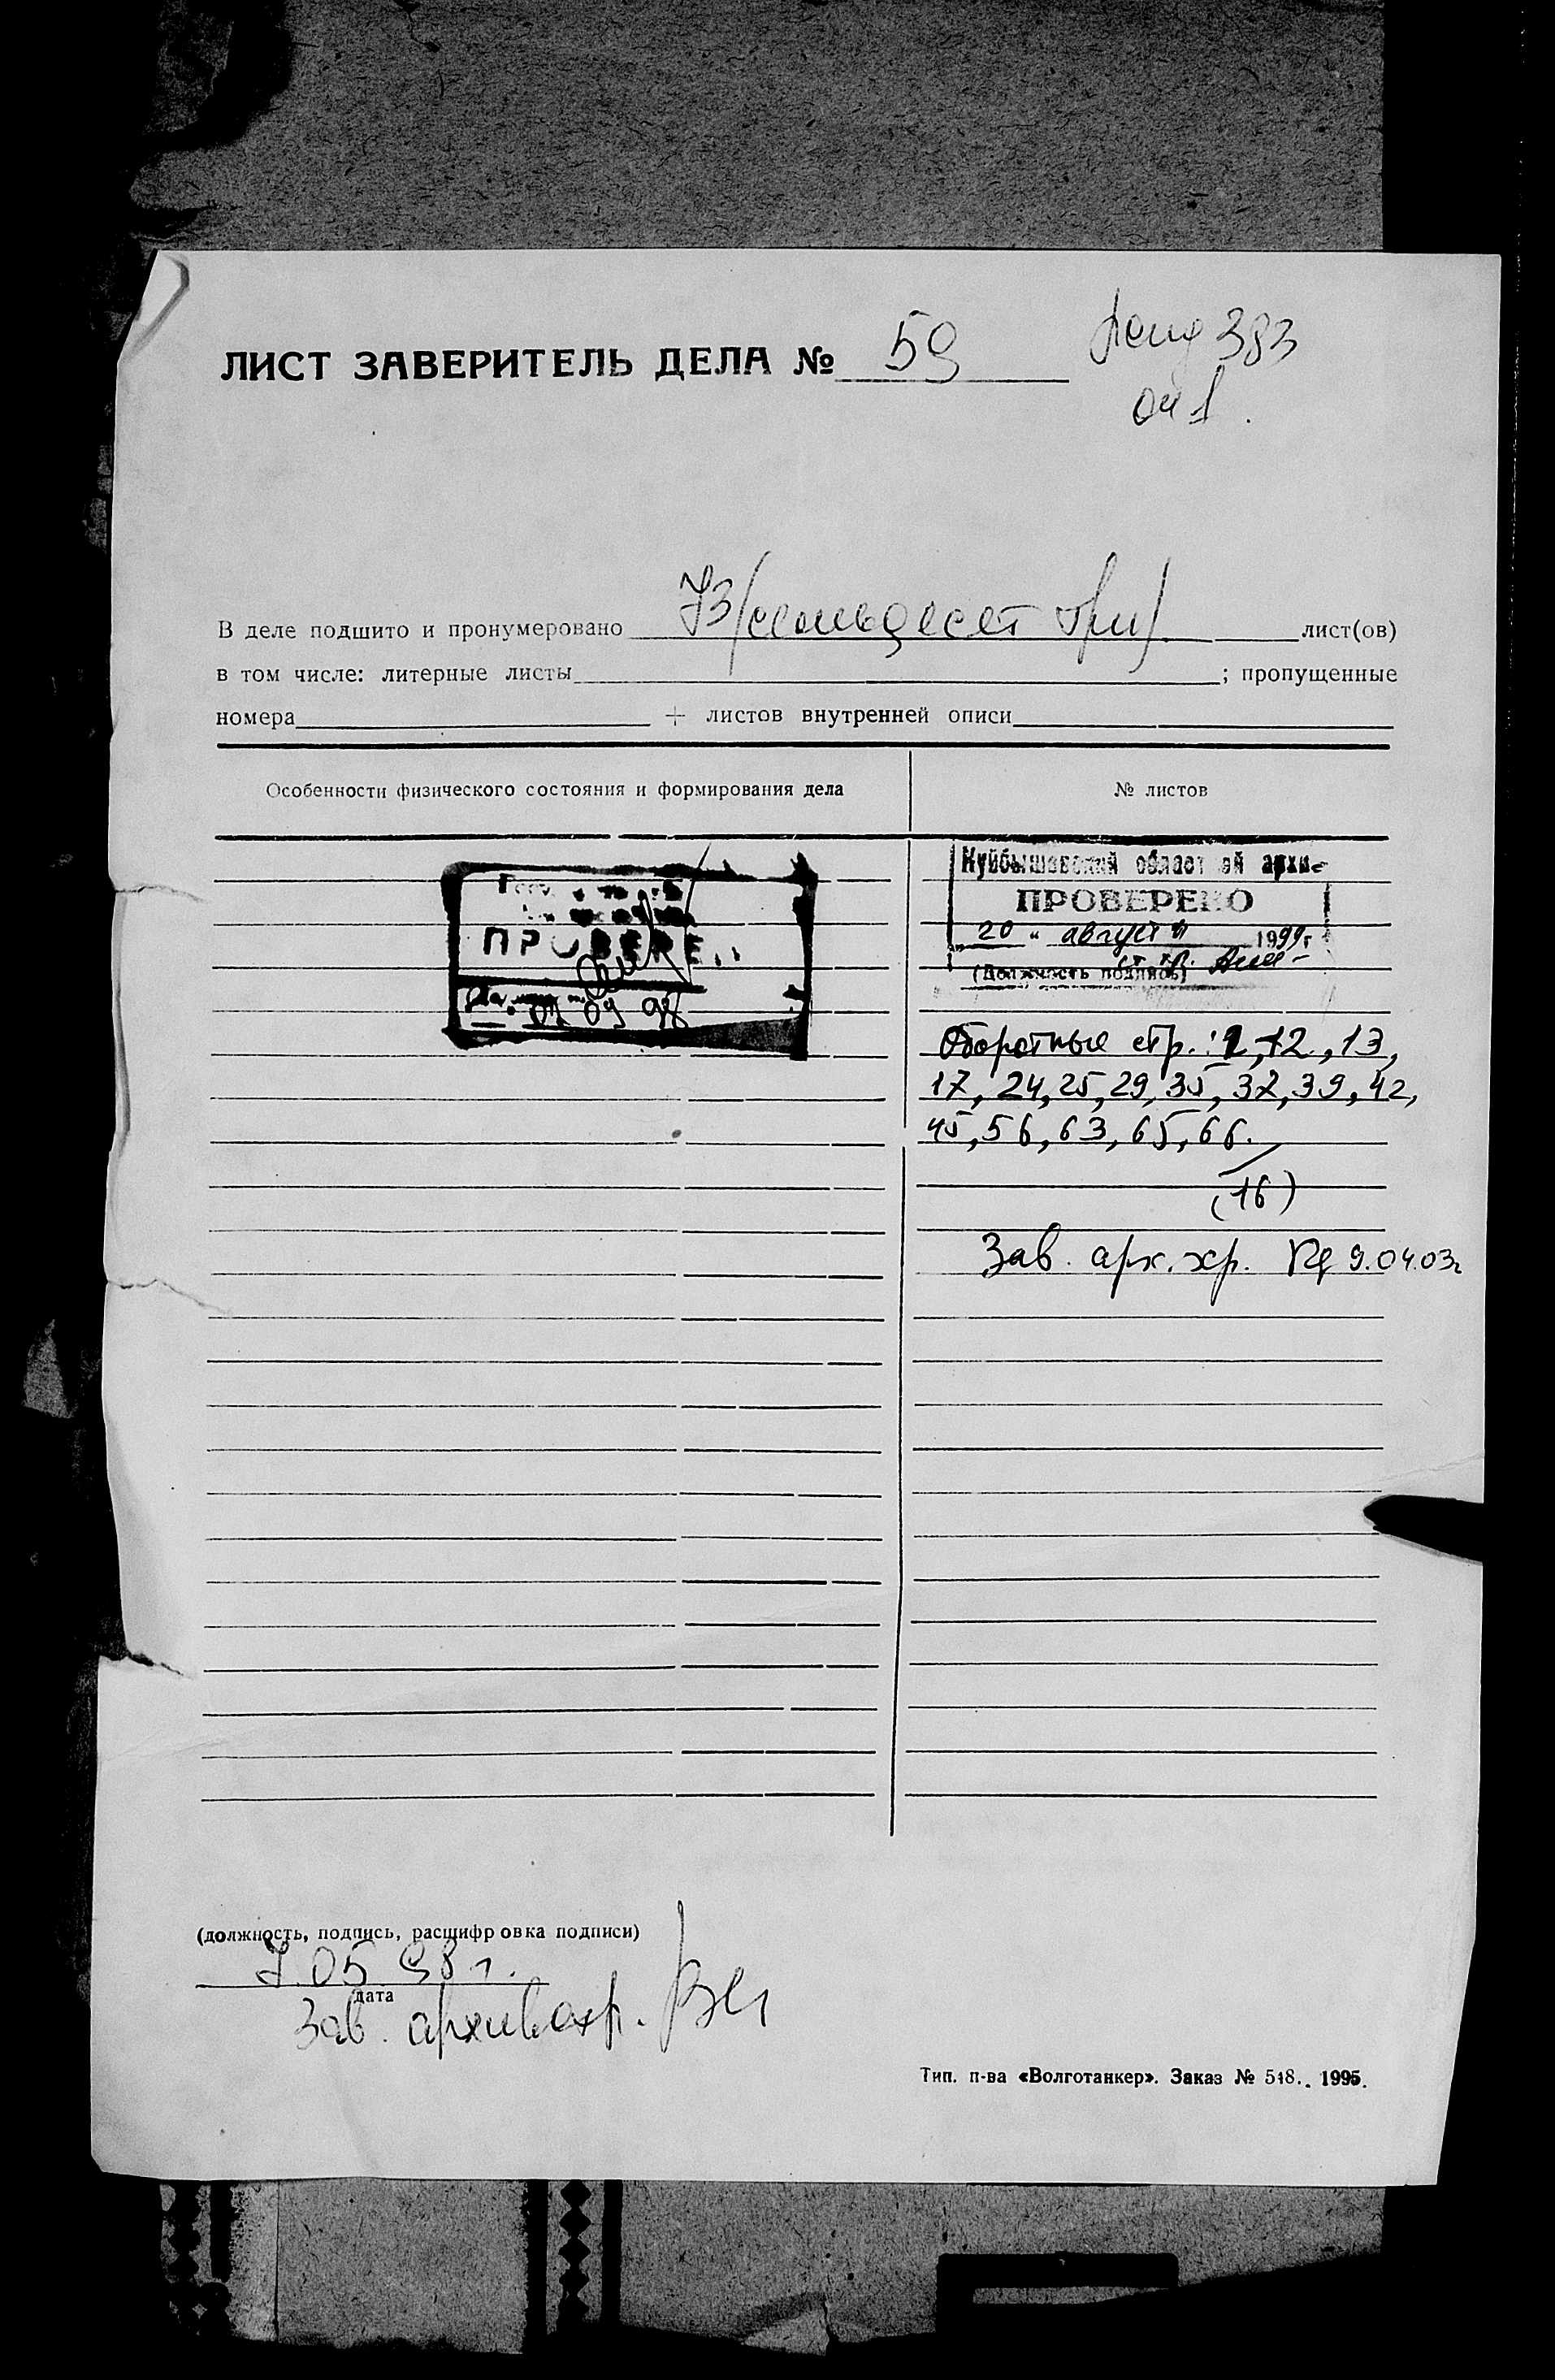 ЛИСТ ЗАВЕРИТЕЛЬ ДЕЛА № 59
фонд 383
оп 1.
В деле подшито и пронумеровано 73/семьдесят три/ лист(ов)
в том числе: литерные листы ; пропущенные
номера + листов внутренней описи
Особенности физического состояния и формирования дела № листов
Куйбышевский област ой архи
ПРОВЕРЕНО
20 " августа 1999г
(Должность подпись)
ПРОВЕРЕ
01 09 98
Оборотные стр.: 12, 13,
17, 24, 25, 29, 35, 37, 39, 42,
45, 56, 63, 65, 66.
(16)
Зав. арх. хр. 9.04.03г
(должность, подпись, расшифровка подписи)
7.05 98 г.
дата
Зав. архивохр.
Тип. п-ва «Волготанкер». Заказ № 518. 1995.